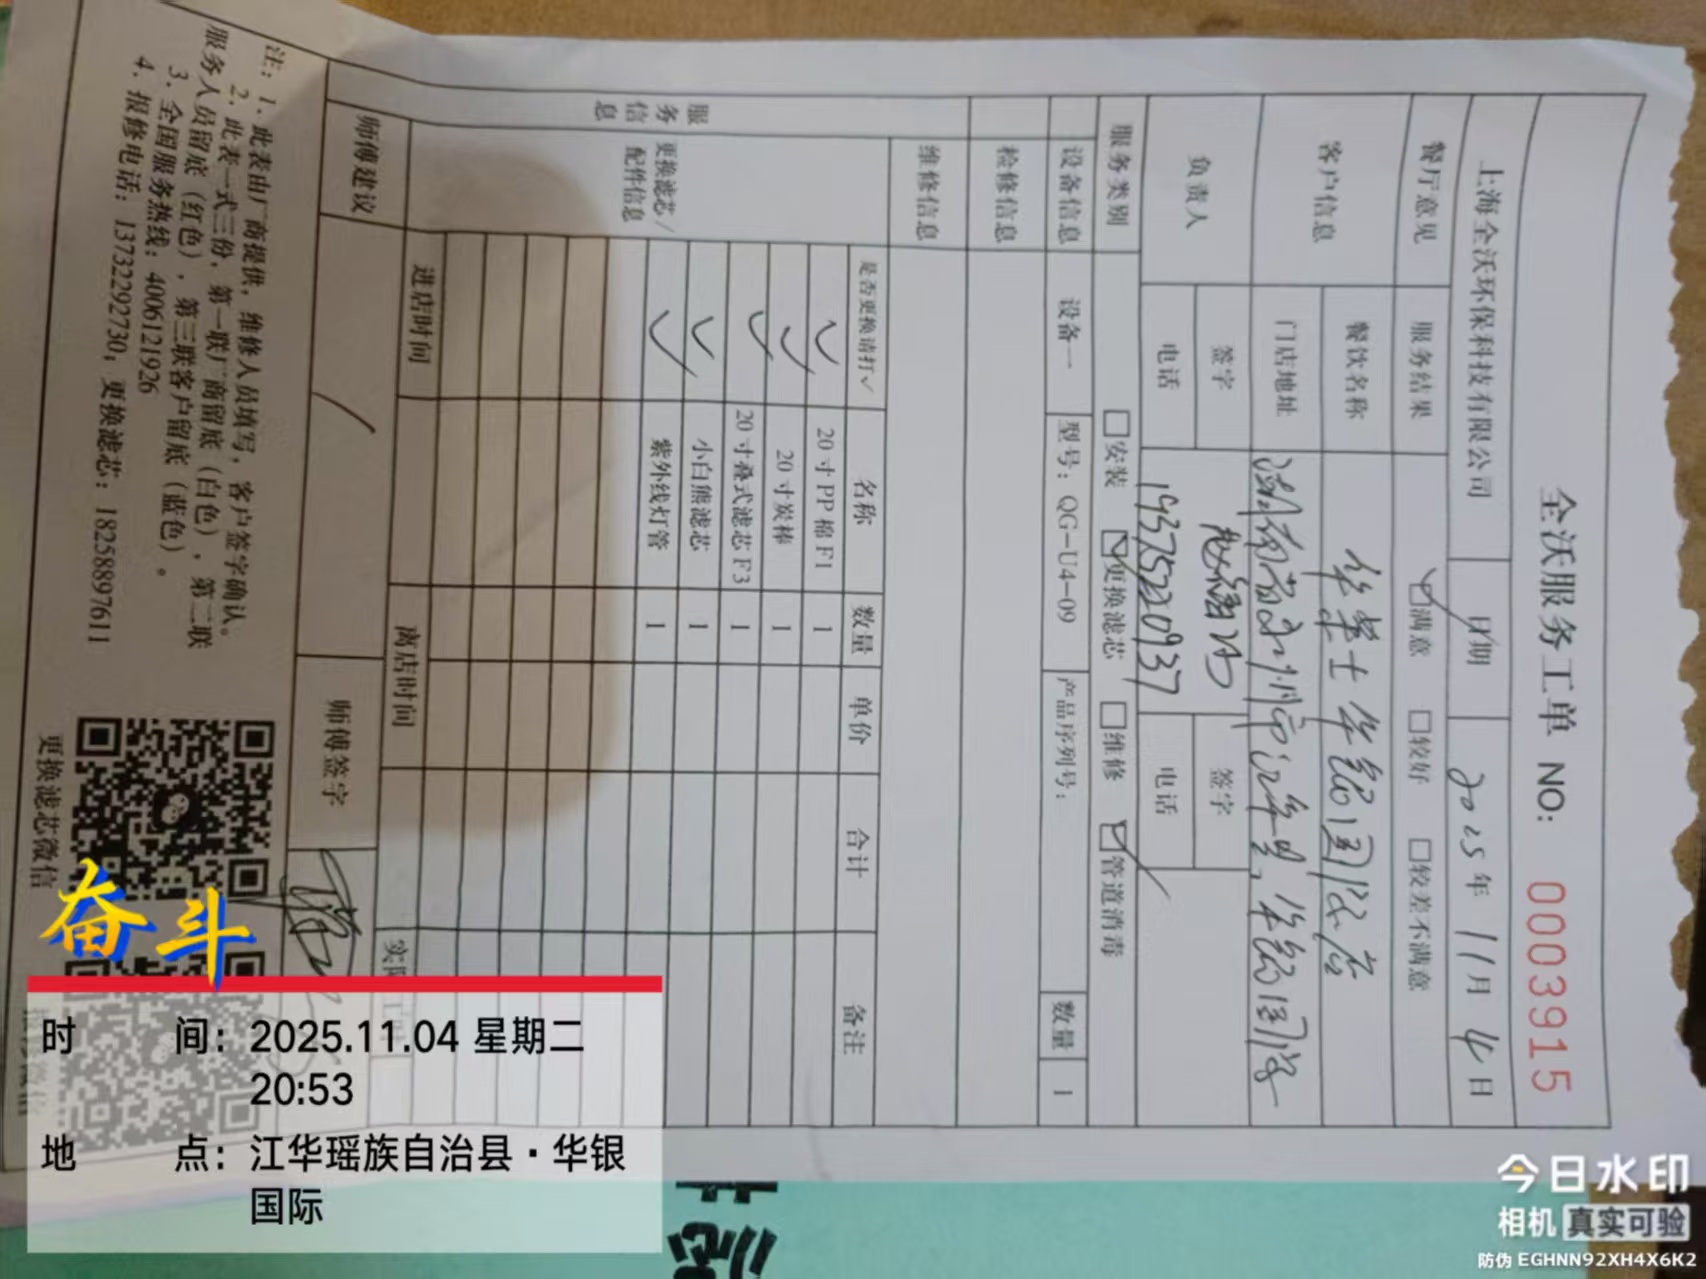 全沃服务工单 NO: 0003915
上海全沃环保科技有限公司 日期 2025年11月4日
餐厅意见 服务结果 ☑满意 □较好 □较差不满意
客户信息 餐饮名称 华莱士华银国际店
门店地址 湖南省永州市江华县,华银国际
负责人 签字 签字
电话 19375220937 电话
服务类别 □安装 ☑更换滤芯 □维修 ☑管道消毒
设备信息 设备一 型号:QG-U4-09 产品序列号: 数量 1
检修信息
维修信息
服务信息
更换滤芯/配件信息
是否更换请打✓ 名称 数量 单价 合计 备注
✓ 20寸PP棉F1 1
✓ 20寸炭棒 1
✓ 20寸叠式滤芯F3 1
✓ 小白熊滤芯 1
✓ 紫外线灯管 1
进店时间 离店时间
师傅建议 / 师傅签字
注:1.此表由厂商提供,维修人员填写,客户签字确认。
2.此表一式三份,第一联厂商留底(白色),第二联
服务人员留底(红色),第三联客户留底(蓝色)。
3.全国服务热线:4006121926
4.报修电话:13732292730;更换滤芯:18258897611
更换滤芯微信
奋斗
时间:2025.11.04 星期二
20:53
地点:江华瑶族自治县·华银
国际
今日水印
相机 真实可验
防伪 EGHNN92XH4X6K2